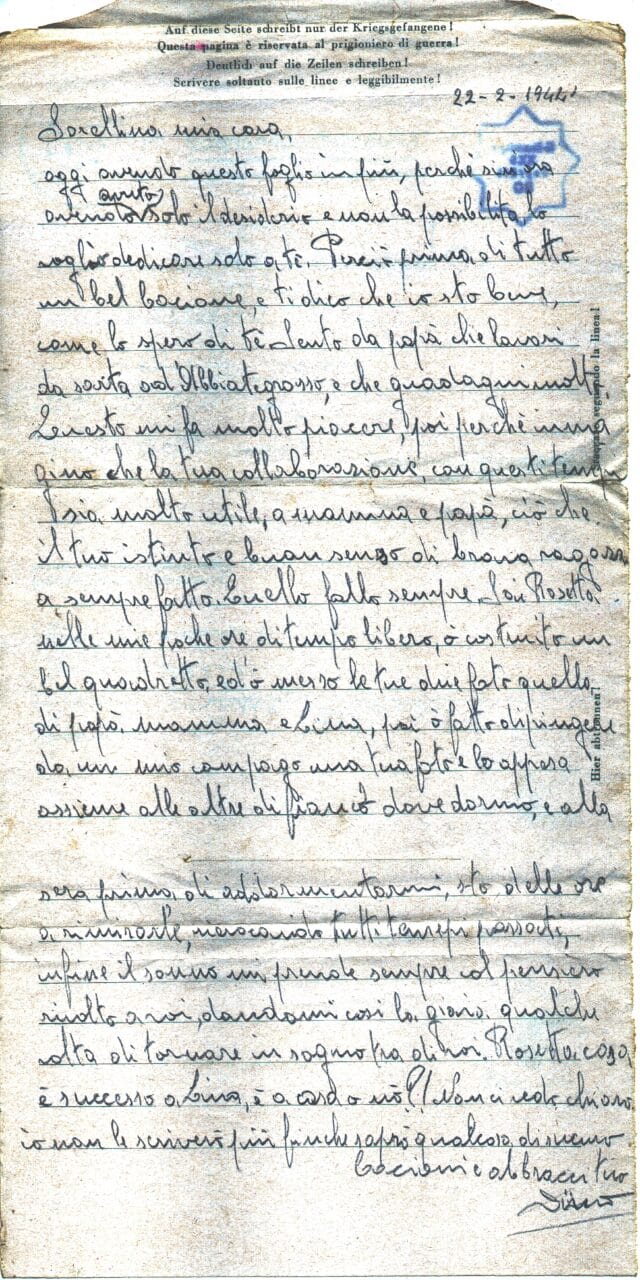 Auf diese Seite schreibt nur der Kriegsgefangene!
Questa pagina è riservata al prigioniero di guerra!
Deutlich auf die Zeilen schreiben!
Scrivere soltanto sulle linee e leggibilmente!
22-2-1944
Sorellina mia cara,
oggi avendo questo foglio in più, perchè sin ora
avuto
avendo solo il desiderio e non la possibilità, lo
voglio dedicare solo a te. Perciò prima di tutto
un bel bacione, e ti dico che io sto bene,
come lo spero di te. Sento da papà che lavori
da sarta ad Abbiategrasso, e che guadagni molto.
Questo mi fa molto piacere, poi perchè imma
gino che la tua collaborazione, con questi tempi
sia molto utile, a mamma e papà, ciò che
il tuo istinto e buon senso di brava ragazza
a sempre fatto. Quello fallo sempre. Sai Rosetta,
nelle mie poche ore di tempo libero, ò costruito un
bel quadretto, ed ò messo le tue due foto quella
di papà mamma e Lina, poi ò fatto dipingere
da un mio compagno una tua foto e lo appesa
assieme alle altre di fianco dove dormo, e alla
sera prima di addormentarmi, sto delle ore
a rimirarle, rievocando tutti i tempi passati,
infine il sonno mi prende sempre col pensiero
rivolto a voi, dandomi così la gioia qualche
volta di tornare in sogno tra di voi. Rosetta cosa
è successo a Lina, è a casa o nò?! Non ci vedo chiaro,
io non le scriverò più finchè saprò qualcosa di sicuro
Bacioni e abbracci tuo
Hier abtrennen!
seguendo la linea!